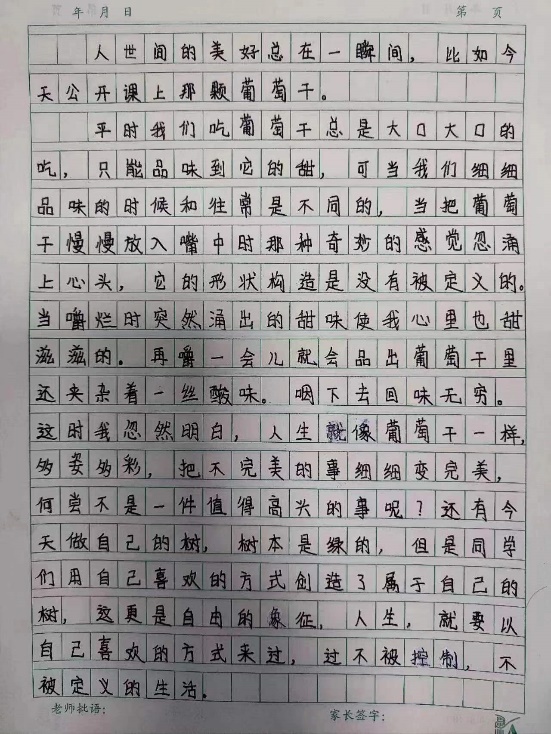 年 月 日 第 页
人世间的美好总在一瞬间，比如今
天公开课上那颗葡萄干。
平时我们吃葡萄干总是大口大口的
吃，只能品味到它的甜，可当我们细细
品味的时候和往常是不同的，当把葡萄
干慢慢放入嘴中时那种奇妙的感觉忽涌
上心头，它的形状构造是没有被定义的。
当嚼烂时突然涌出的甜味使我心里也甜
滋滋的。再嚼一会儿就会品出葡萄干里
还夹杂着一丝酸味。咽下去回味无穷。
这时我忽然明白，人生就像葡萄干一样，
多姿多彩，把不完美的事细细变完美，
何尝不是一件值得高兴的事呢？还有今
天做自己的树，树本是绿的，但是同学
们用自己喜欢的方式创造了属于自己的
树，这更是自由的象征，人生，就要以
自己喜欢的方式来过，过不被控制，不
被定义的生活。
老师批语： 家长签字：